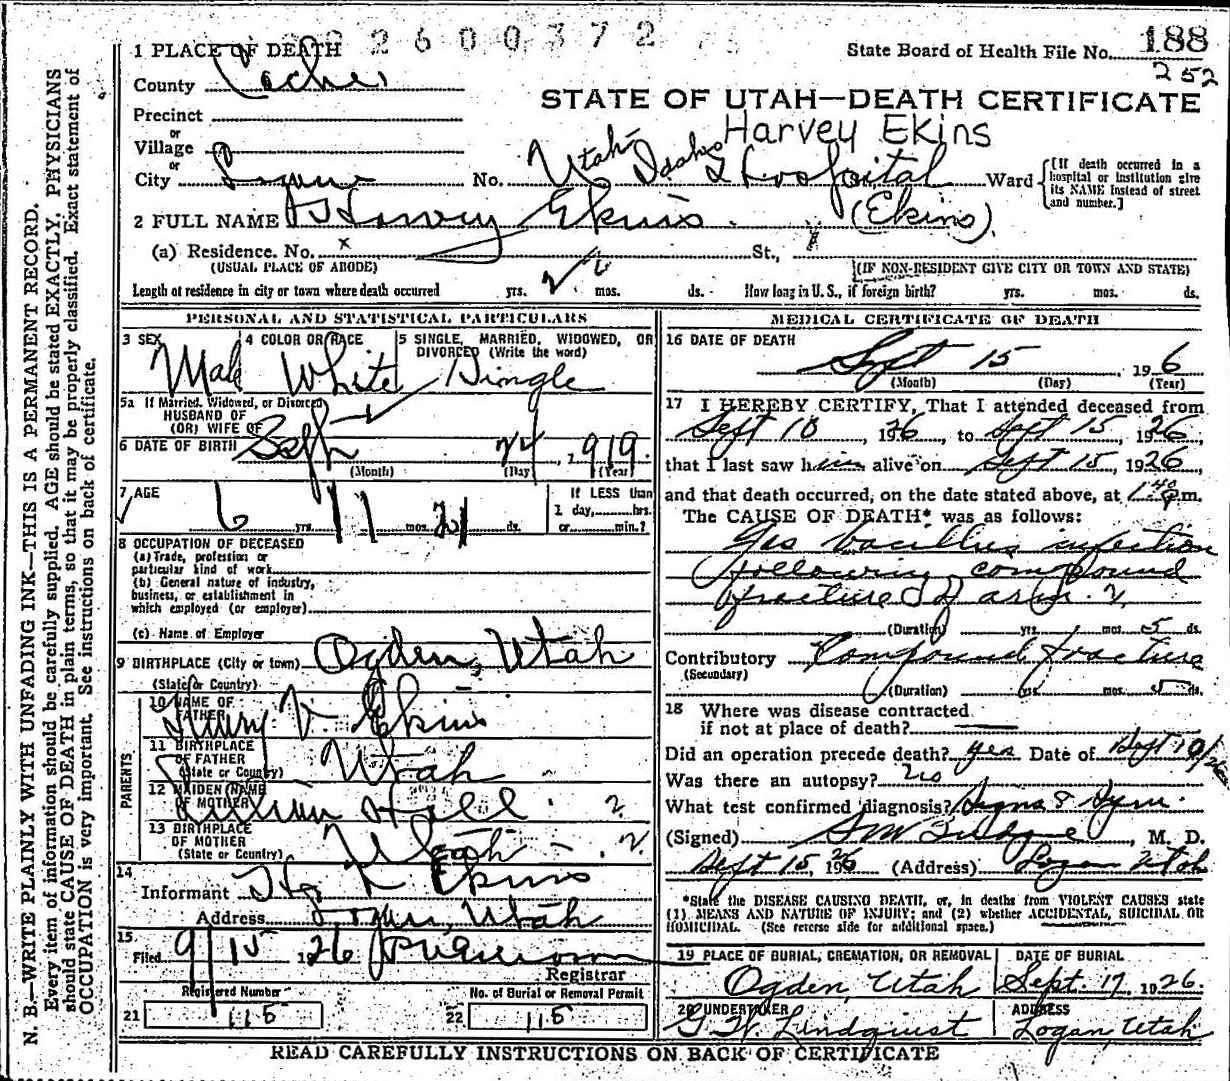 2600372
1 PLACE OF DEATH
State Board of Health File No. 188
252
County Cache
STATE OF UTAH—DEATH CERTIFICATE
Precinct
or
Village
Harvey Ekins
or
City Logan No. Utah-Idaho Hospital Ward {[If death occurred in a hospital or institution give its NAME instead of street and number.]
2 FULL NAME Harvey Ekins (Ekins)
(a) Residence. No. x St.,
(USUAL PLACE OF ABODE)
(IF NON-RESIDENT GIVE CITY OR TOWN AND STATE)
Length of residence in city or town where death occurred yrs. mos. ds. How long in U. S., if foreign birth? yrs. mos. ds.
PERSONAL AND STATISTICAL PARTICULARS
3 SEX Male
4 COLOR OR RACE White
5 SINGLE, MARRIED, WIDOWED, OR DIVORCED (Write the word) Single
5a If Married, Widowed, or Divorced
HUSBAND OF
(OR) WIFE OF
6 DATE OF BIRTH Sept 24, 1919
(Month) (Day) (Year)
7 AGE 6 yrs. 11 mos. 21 ds.
If LESS than
1 day, hrs.
or min.?
8 OCCUPATION OF DECEASED
(a) Trade, profession or
particular kind of work
(b) General nature of industry,
business, or establishment in
which employed (or employer)
(c) Name of Employer
9 BIRTHPLACE (City or town) Ogden, Utah
(State or Country)
PARENTS
10 NAME OF FATHER V. Ekins
11 BIRTHPLACE OF FATHER
(State or Country) Utah
12 MAIDEN NAME OF MOTHER Lillian Hill ?
13 BIRTHPLACE OF MOTHER
(State or Country) Utah
14
Informant Ekins
Address Logan, Utah
15
Filed 9/15 1926
Registrar
Registered Number
21 115
No. of Burial or Removal Permit
22 115
MEDICAL CERTIFICATE OF DEATH
16 DATE OF DEATH
Sept 15, 1926
(Month) (Day) (Year)
17 I HEREBY CERTIFY, That I attended deceased from
Sept 10, 1926, to Sept 15, 1926,
that I last saw him alive on Sept 15, 1926,
and that death occurred, on the date stated above, at 1:40 P.m.
The CAUSE OF DEATH* was as follows:
Gas bacillus infection
following compound
fracture of arm.
(Duration) yrs. mos. 5 ds.
Contributory Compound fracture
(Secondary)
(Duration) yrs. mos. 5 ds.
18 Where was disease contracted
if not at place of death?
Did an operation precede death? yes Date of Sept 10/26
Was there an autopsy? No
What test confirmed diagnosis? Signs & Sym.
(Signed) M. D.
Sept 15, 1926 (Address) Logan Utah
*State the DISEASE CAUSING DEATH, or, in deaths from VIOLENT CAUSES state
(1) MEANS AND NATURE OF INJURY; and (2) whether ACCIDENTAL, SUICIDAL OR
HOMICIDAL. (See reverse side for additional space.)
19 PLACE OF BURIAL, CREMATION, OR REMOVAL
Ogden, Utah
DATE OF BURIAL
Sept. 17, 1926.
20 UNDERTAKER
G. W. Lindquist
ADDRESS
Logan, Utah
READ CAREFULLY INSTRUCTIONS ON BACK OF CERTIFICATE
N. B.—WRITE PLAINLY WITH UNFADING INK—THIS IS A PERMANENT RECORD.
Every item of information should be carefully supplied. AGE should be stated EXACTLY. PHYSICIANS
should state CAUSE OF DEATH in plain terms, so that it may be properly classified. Exact statement of
OCCUPATION is very important. See instructions on back of certificate.